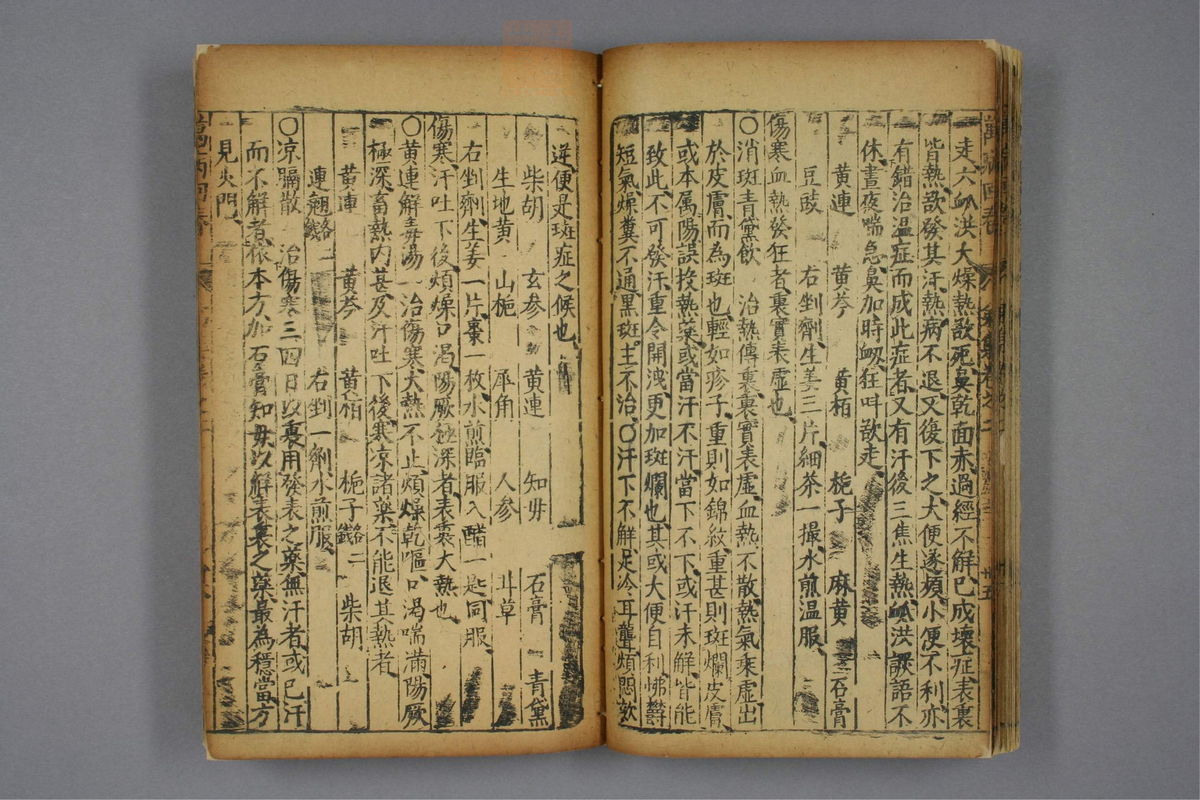 走六脉洪大燥熱欲死鼻乾面赤過經不解已成壞症表裏
皆熱欲發其汗熱病不退又復下之大便遂頻小便不利亦
有錯治溫症而成此症者又有汗後三焦生熱脉洪譫語不
休晝夜喘急鼻加時衂狂叫欲走
黃連 黃芩 黃栢 梔子 麻黃 石膏
豆豉 右剉劑生姜三片細茶一撮水煎溫服
傷寒血熱發狂者裏實表虛也
○消斑青黛飲 治熱傳裏裏實表虛血熱不散熱氣乘虛出
於皮膚而為斑也輕如疹子重則如錦紋重甚則斑爛皮膚
或本属陽誤投熱藥或當汗不汗當下不下或汗未解皆能
致此不可發汗重令開洩更加斑爛也其或大便自利怫欝
短氣燥糞不通黑斑主不治○汗下不解足冷耳聾煩悶欬
逆便是斑症之候也
柴胡 玄參 黃連 知毋 石膏 青黛
生地黃 山梔 犀角 人參 甘草
右剉劑生姜一片棗一枚水煎臨服入醋一匙同服
傷寒汗吐下後煩燥口渴陽厥極深者表裏大熱也
○黃連解毒湯 治傷寒大熱不止煩燥乾嘔口渴喘滿陽厥
極深畜熱內甚及汗吐下後寒凉諸藥不能退其熱者
黃連 黃芩 黃栢 梔子 柴胡
連翹 右剉一劑水煎服
○凉膈散 治傷寒三四日以裏用發表之藥無汗者或已汗
而不解者依本方加石膏知毋以解表裏之藥最為穩當方
見火門